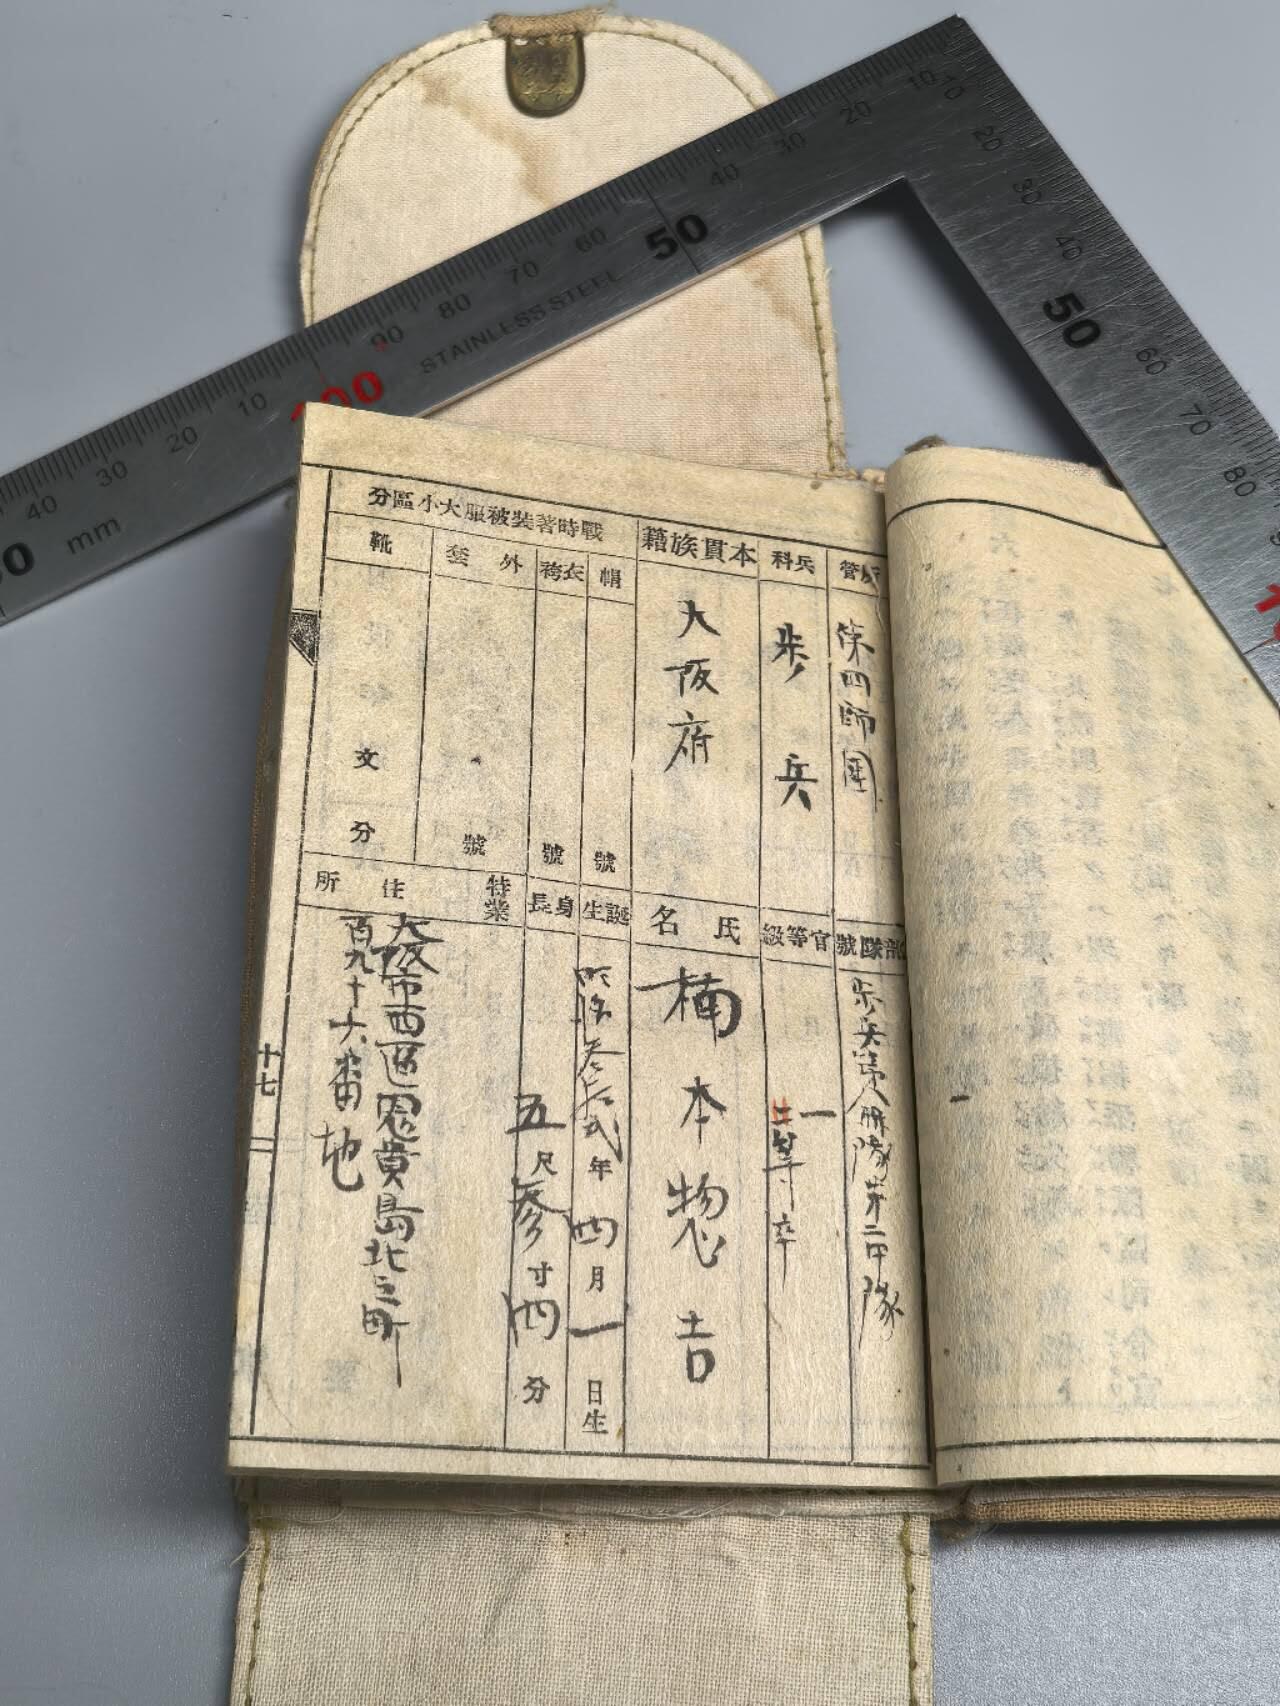 所管
第四師團
部隊號
歩兵第八聯隊第二中隊
兵科
歩兵
官等級
一
二等卒
本貫族籍
大阪府
氏名
楠本惣吉
戰時著裝被服大小區分
帽
號
衣袴
號
外套
號
靴
文
分
誕生
明治参拾弐年四月一日生
身長
五尺参寸四分
特業
住所
大阪市西區恩貴島北之町
百九十六番地
十七
10 20 30 40 50 60 70 80 90 100 10 20 30 40
STAINLESS STEEL
mm
10 20 30 40 50 60 70 80